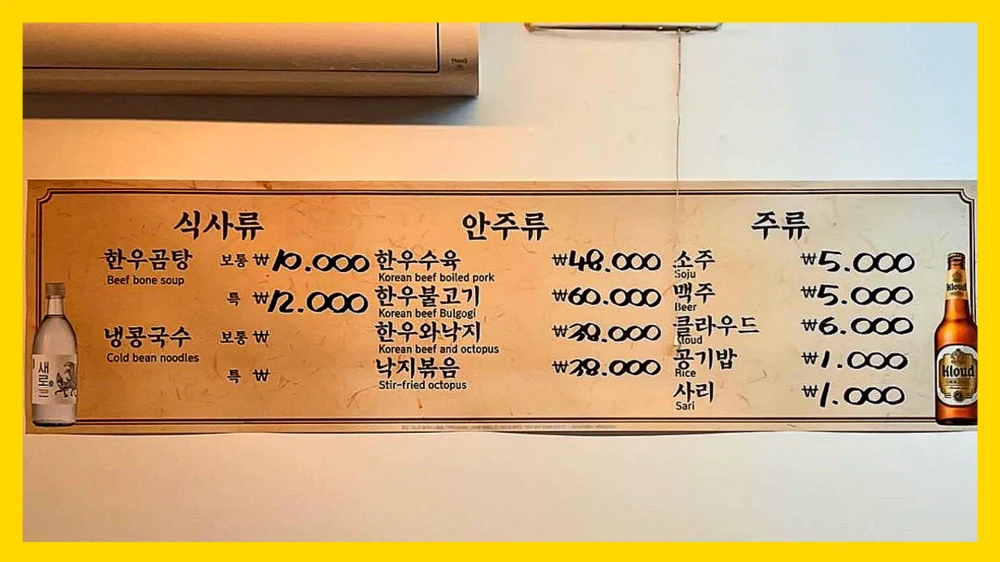 식사류
한우곰탕 보통 ₩10.000
Beef bone soup
특 ₩12.000
냉콩국수 보통 ₩
Cold bean noodles
특 ₩
안주류
한우수육 ₩48.000
Korean beef boiled pork
한우불고기 ₩60.000
Korean beef Bulgogi
한우와낙지 ₩38.000
Korean beef and octopus
낙지볶음 ₩38.000
Stir-fried octopus
주류
소주 ₩5.000
Soju
맥주 ₩5.000
Beer
클라우드 ₩6.000
Kloud
공기밥 ₩1.000
Rice
사리 ₩1.000
Sari
새로
Kloud
Kloud